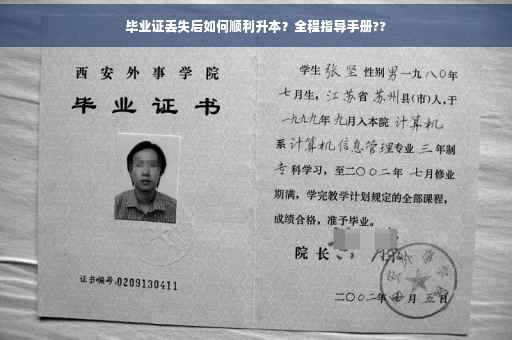 毕业证丢失后如何顺利升本？全程指导手册??
西安外事学院
毕业证书
证书编号:0209130411
学生 张坚 性别 男 一九八〇年
七月生，江苏省 苏州县(市)人，于
一九九九年 九月入本院 计算机
系 计算机信息管理专业 三 年制
专科学习，至二〇〇二年 七月修业
期满，学完教学计划规定的全部课程，
成绩合格，准予毕业。
院长
二〇〇二年 月 五日